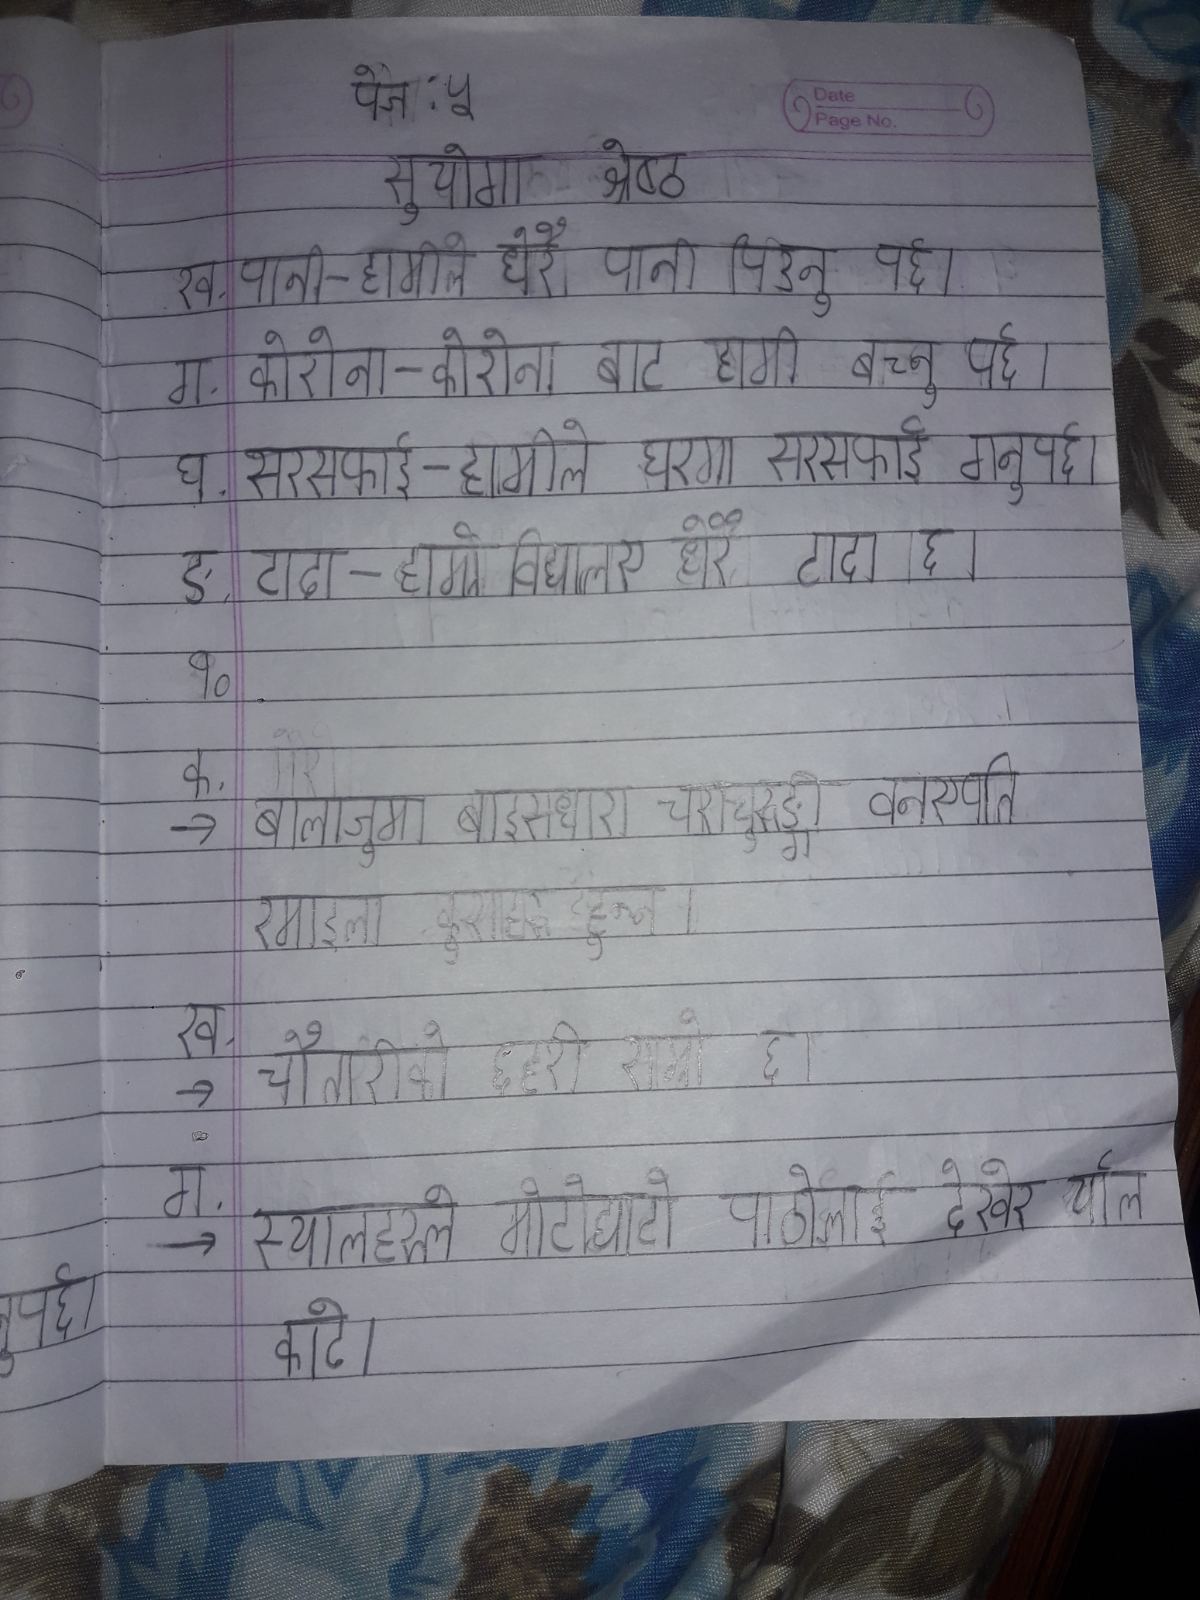 पेज : ५
Date
Page No.
सुयोगा श्रेष्ठ
ख. पानी - हामीले धेरै पानी पिउनु पर्छ।
ग. कोरोना - कोरोना बाट हामी बच्नु पर्छ।
घ. सरसफाई - हामीले घरमा सरसफाई गनुपर्छ।
ङ. टाढा - हाम्रो विद्यालय धेरै टाढा छ।
१०.
क.
→ बालाजुमा बाइसधारा चराचुरुङ्गी वनस्पति
रमाइला कुराहरु हुन्न।
ख.
→ चौतारीको छहरी राम्रो छ।
ग.
→ स्यालहरुले मोटोघाटो पाठोलाई देखेर र्याल
काढे।
नुपर्छ।